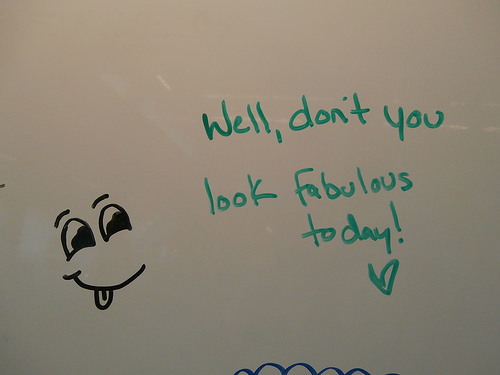 Well, don't you
look fabulous
today!